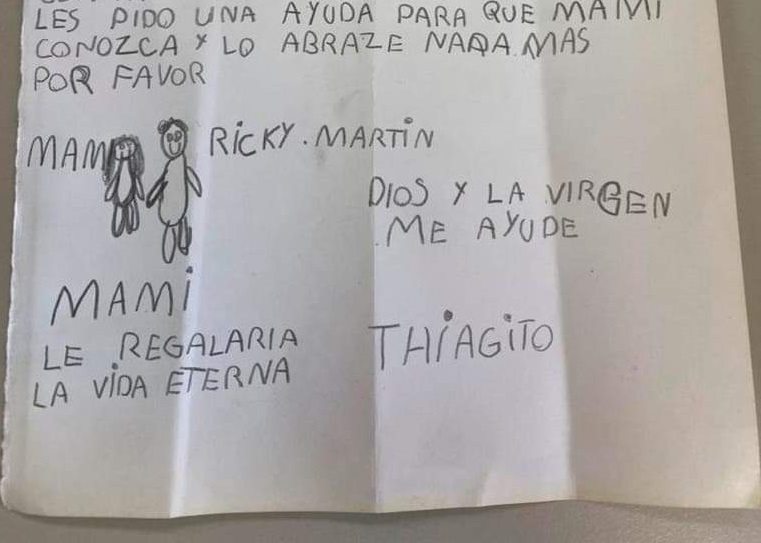 LES PIDO UNA AYUDA PARA QUE MAMI
CONOZCA Y LO ABRAZE NADA.MAS
POR FAVOR
MAMI
RICKY.MARTIN
DIOS Y LA VIRGEN
ME AYUDE
MAMI
LE REGALARIA
LA VIDA ETERNA
THIAGITO